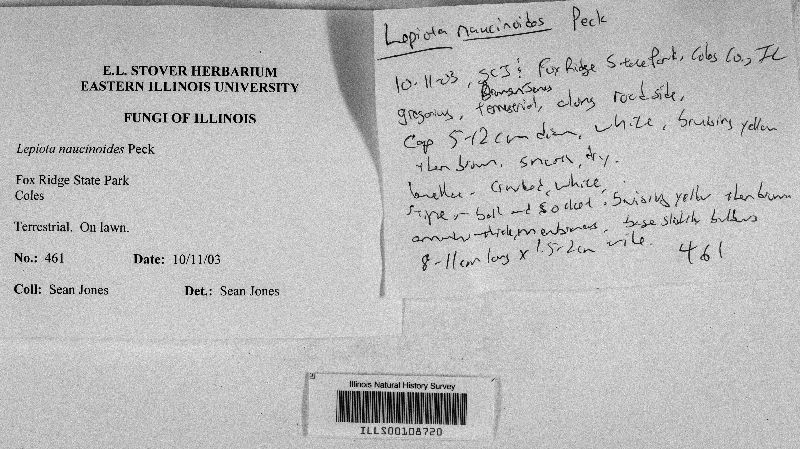 E.L. STOVER HERBARIUM
EASTERN ILLINOIS UNIVERSITY
FUNGI OF ILLINOIS
Lepiota naucinoides Peck
Fox Ridge State Park
Coles
Terrestrial. On lawn.
No.: 461 Date: 10/11/03
Coll: Sean Jones Det.: Sean Jones
Lepiota naucinoidos Peck
10-11-03, SCJ! Fox Ridge State Park, Coles Co., IL
gregarious, terrestrial, along roadside,
Cap 5-12 cm diam, white, bruising yellow
then brown. smooth, dry.
lamellae - Crowded, white,
Stipe - ball and socket, bruising yellow then brown
annulus - thick, membranous, base slightly bulbous
8-11 cm long x 1.5-2 cm wide. 461
Illinois Natural History Survey
ILLS00108720